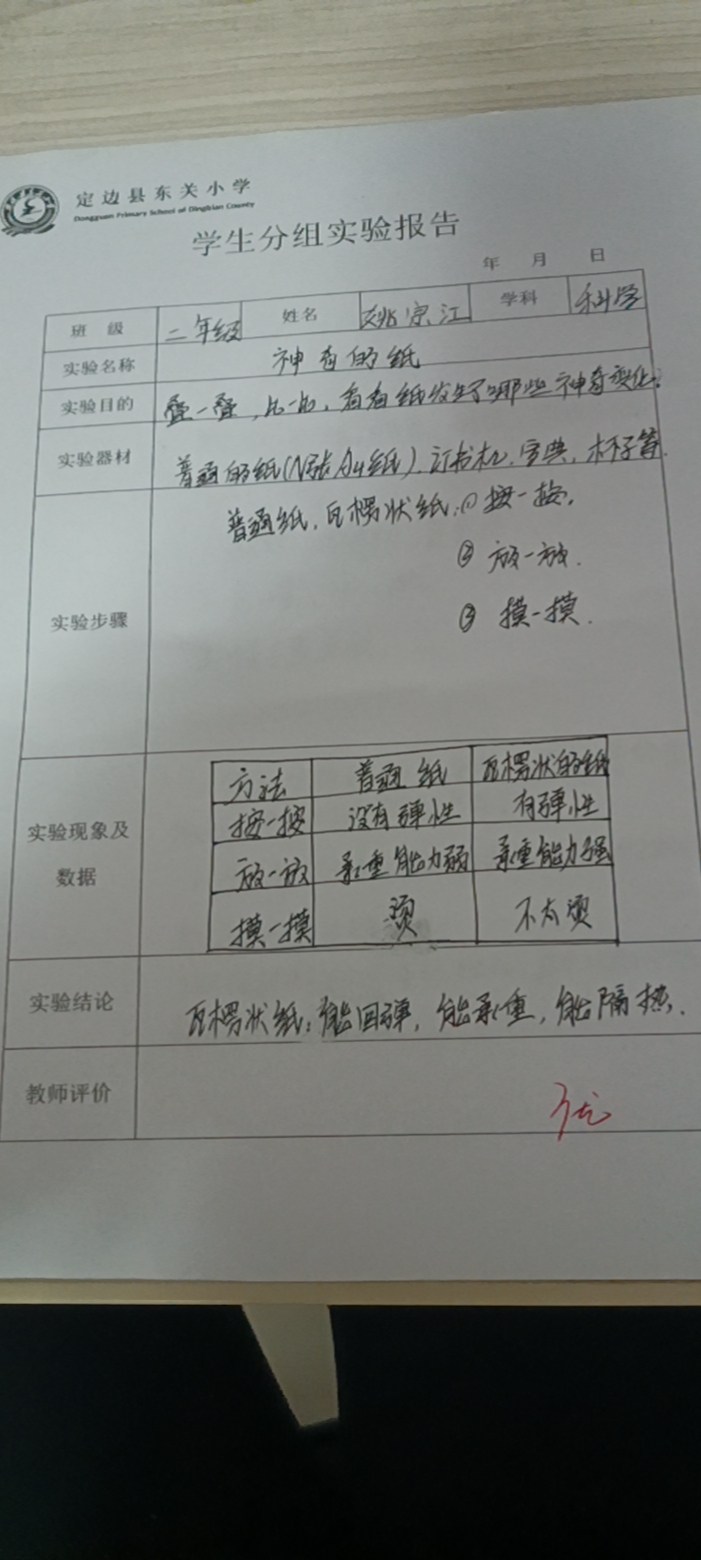 定边县东关小学
Dongguan Primary School of Dingbian County
学生分组实验报告
年 月 日
班 级 二年级 姓名 姚宗江 学科 科学
实验名称 神奇的纸
实验目的 叠一叠,比一比,看看纸发生了哪些神奇变化。
实验器材 普通的纸(N张A4纸)、订书机、字典、杯子等.
普通纸、瓦楞状纸:① 按一按。
② 放一放.
实验步骤 ③ 摸一摸.
方法 普通纸 瓦楞状的纸
按一按 没有弹性 有弹性
实验现象及
数据
放一放 承重能力弱 承重能力强
摸一摸 烫 不太烫
实验结论 瓦楞状纸:能回弹,能承重,能隔热.
教师评价 优